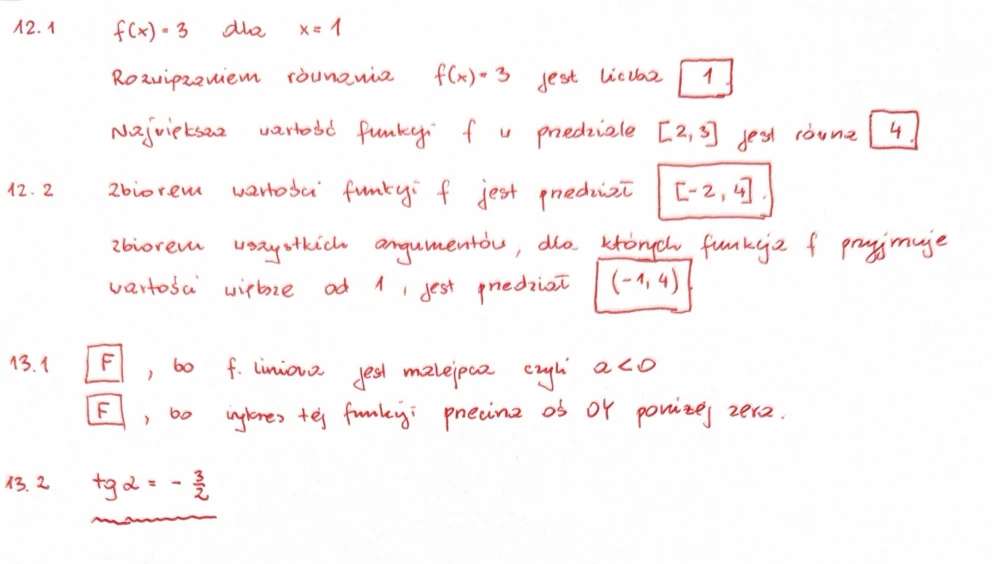 12.1 f(x) = 3 dla x = 1
Rozwiązaniem równania f(x) = 3 jest liczba 1.
Największa wartość funkcji f w przedziale [2, 3] jest równa 4.
12.2 Zbiorem wartości funkcji f jest przedział [-2, 4].
Zbiorem wszystkich argumentów, dla których funkcja f przyjmuje
wartości większe od 1, jest przedział (-1, 4).
13.1 F, bo f. liniowa jest malejąca czyli a<0
F, bo wykres tej funkcji przecina oś OY poniżej zera.
13.2 tg α = - 3/2